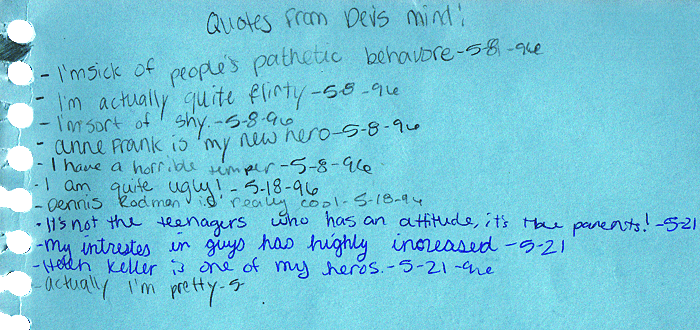 Quotes from Dev's mind!
- I'm sick of people's pathetic behavore - 5-8-96
- I'm actually quite flirty - 5-8-96
- I'm sort of shy. - 5-8-96
- anne Frank is my new hero - 5-8-96
- I have a horrible temper - 5-8-96
- I am quite ugly! - 5-18-96
- Dennis Rodman is really cool - 5-18-96
- It's not the teenagers who has an attitude, it's the parents! - 5-21
- my intrestes in guys has highly increased - 5-21
- Helen Keller is one of my heros. - 5-21-96
- actually I'm pretty - 5-